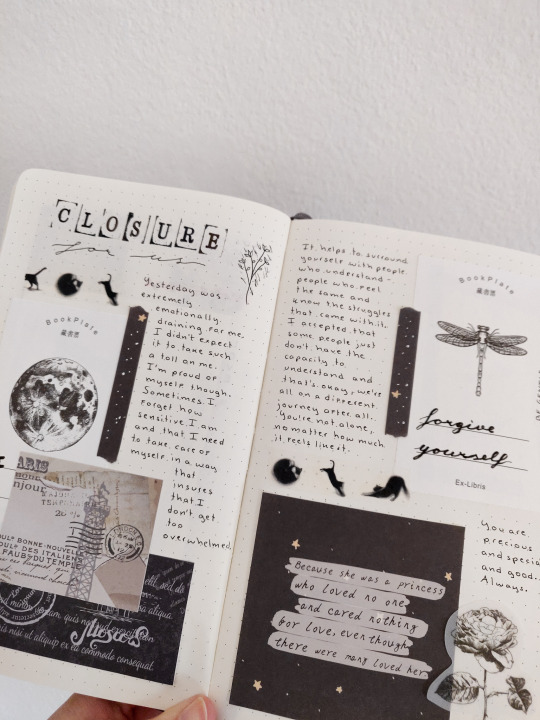 CLOSURE
for us
Yesterday was
extremely
emotionally
draining for me.
I didn't expect
it to take such
a toll on me.
I'm proud of
myself though.
Sometimes I
forget how
sensitive I am
and that I need
to take care of
myself in a way
that
insures
that I
don't get
too
overwhelmed.
BookPlate
藏書票
ARIS
njour
BONNE-NOUVELLE
BOUL DES ITALIENS
FAUB DU TEMPLE
It helps to surround
yourself with people
who understand-
people who feel
the same and
know the struggles
that came with it.
I accepted that
some people just
don't have the
capacity to
understand and
that's okay, we're
all on a different
journey after all.
You're not alone,
no matter how much
it feels like it.
BookPlate
藏書票
forgive
yourself
Ex-Libris
Because she was a princess
who loved no one
and cared nothing
for love, even though
there were many loved her
You are
precious
and specia
and good.
Always.